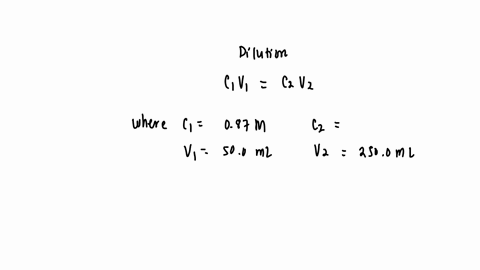 Dilution
C₁V₁ = C₂V₂
where C₁ = 0.87 M C₂ =
V₁ = 50.0 mL V₂ = 250.0 mL